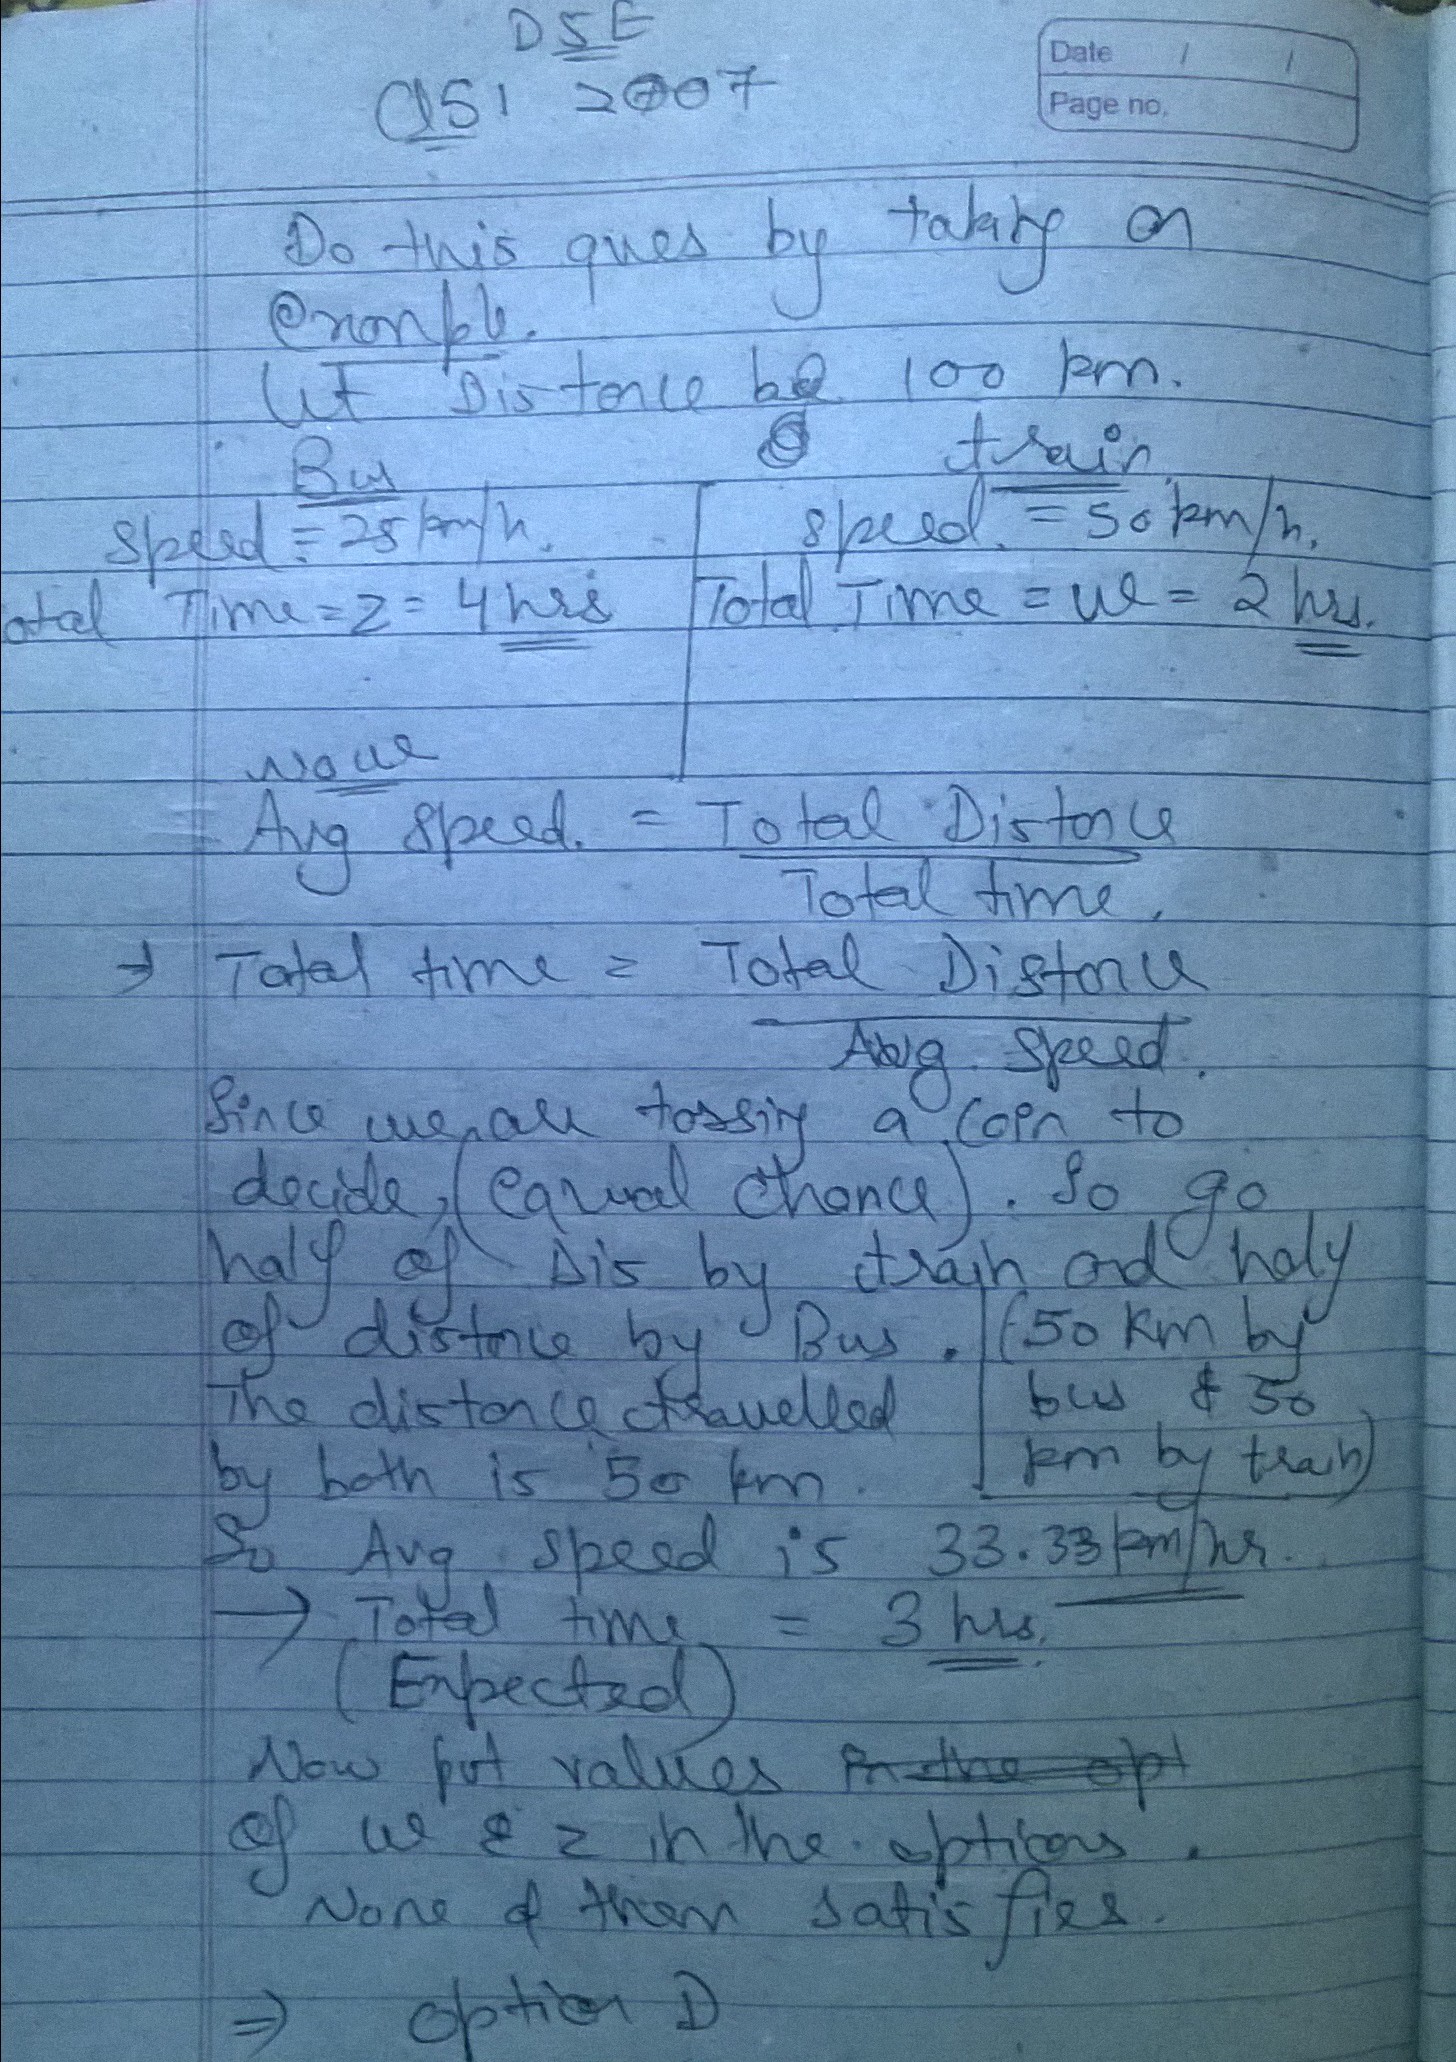 DSE
Q51 2007
Date / /
Page no.
Do this ques by taking an
example.
Let Distance be 100 km.
Bus train
Speed = 25 km/h. Speed = 50 km/h.
otal Time = z = 4 hrs Total Time = w = 2 hrs.
Now
Avg Speed. = Total Distance
Total time.
⇒ Total time = Total Distance
Avg. Speed.
Since we are tossing a coin to
decide, (equal chance). So go
half of Dis by train and half
of distance by Bus. (50 km by
The distance travelled bus & 50
by both is 50 km. km by train)
So Avg speed is 33.33 km/hr.
→ Total time = 3 hrs.
(Expected)
Now put values in the opt
of w & z in the options.
None of them satisfies.
⇒ option D